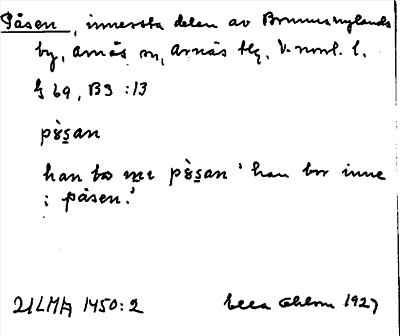 Påsen, innersta delen av Brunnsnylands
by, Arnäs sn, Arnäs tlg, V. norrl. l.
§ 69, B3 :13
pò̀s̠an
han bo pò̀s̠an 'han bor inne
i påsen.'
ULMA 1450:2 1927